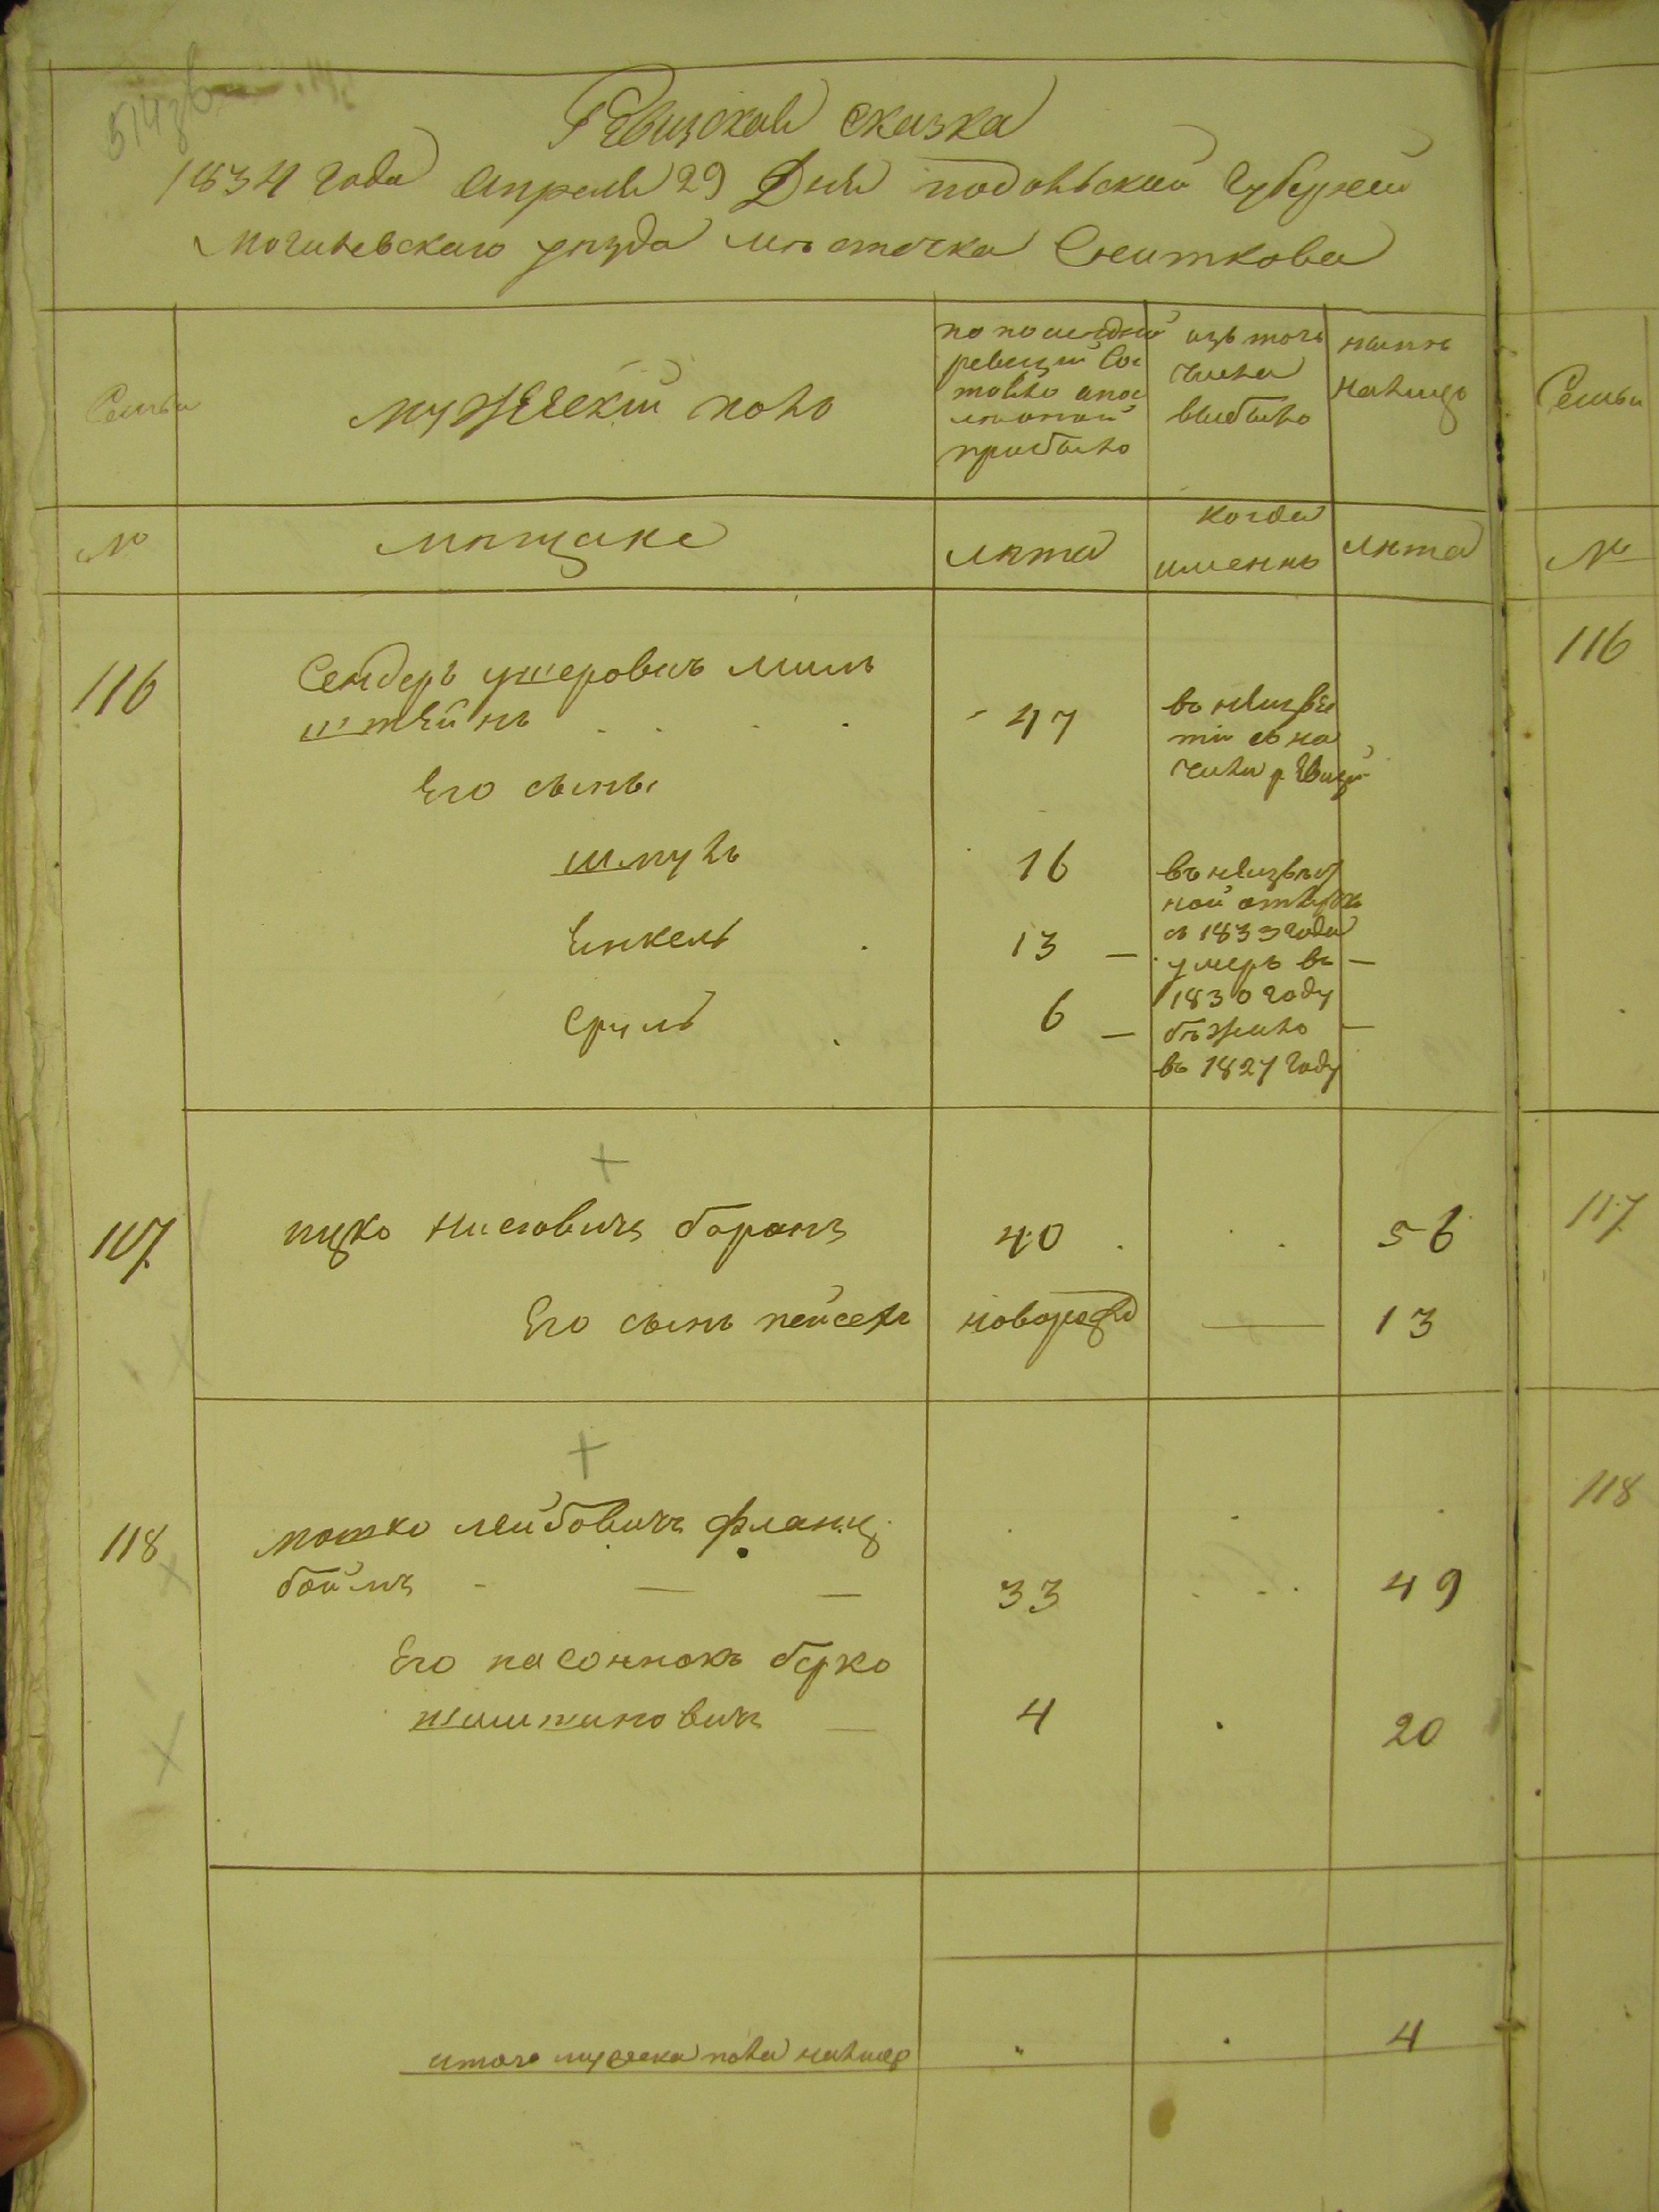 514зв
Ревизская сказка
1834 года Апреля 29 Дня подольской Губернии
Могилевскаго уѣзда мѣстечка Сниткова
Семьи
мужеский полъ
по последней
ревизии Сос
тояло и пос
ле оной
прибыло
изъ того
числа
выбыло
нынѣ
налицо
Семьи
№
мѣщане
лѣта
когда
именно
лѣта
№
116
Сендеръ ушеровичъ миль
штейнъ
47
въ неизвѣс
тной
116
Его сыны
шмуль
16
въ неизвѣст
ной отлучке
съ 1833 года
Енкель
13
умеръ въ
1830 году
Сруль
6
бѣжало
въ 1827 году
117
ицко нисовичъ баранъ
40
56
117
Его сынъ пейсехъ
новорожд
13
118
мошко лейбовичъ фланц
боймъ
33
49
118
Его пасонокъ берко
4
20
итого мужеска пола налицо
4